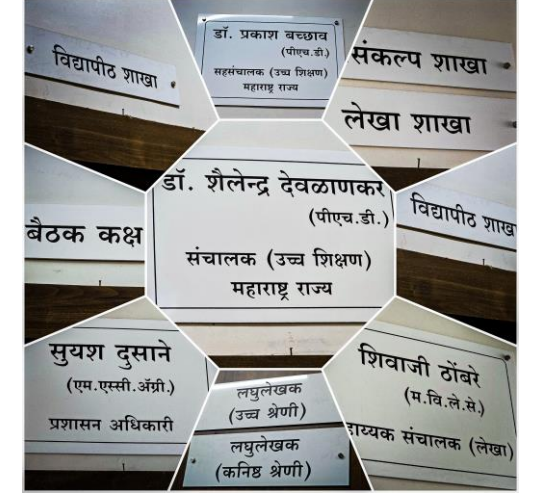 विद्यापीठ शाखा
डॉ. प्रकाश बच्छाव
(पीएच.डी.)
सहसंचालक (उच्च शिक्षण)
महाराष्ट्र राज्य
संकल्प शाखा
लेखा शाखा
बैठक कक्ष
डॉ. शैलेन्द्र देवळाणकर
(पीएच.डी.)
संचालक (उच्च शिक्षण)
महाराष्ट्र राज्य
विद्यापीठ शाख
सुयश दुसाने
(एम.एस्सी.ॲग्री.)
प्रशासन अधिकारी
लघुलेखक
(उच्च श्रेणी)
लघुलेखक
(कनिष्ठ श्रेणी)
शिवाजी ठोंबरे
(म.वि.ले.से.)
हाय्यक संचालक (लेखा)